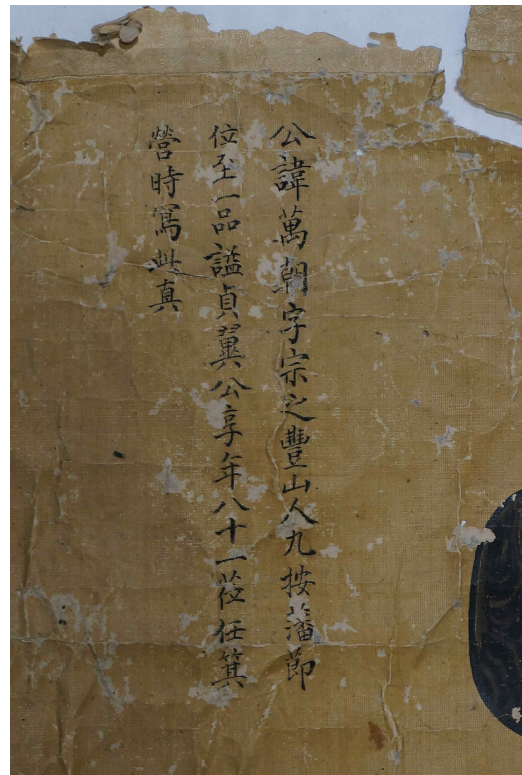 公諱萬朝字宗之豐山人九按藩節
位至一品謚貞翼公享年八十一莅任箕
營時寫此真